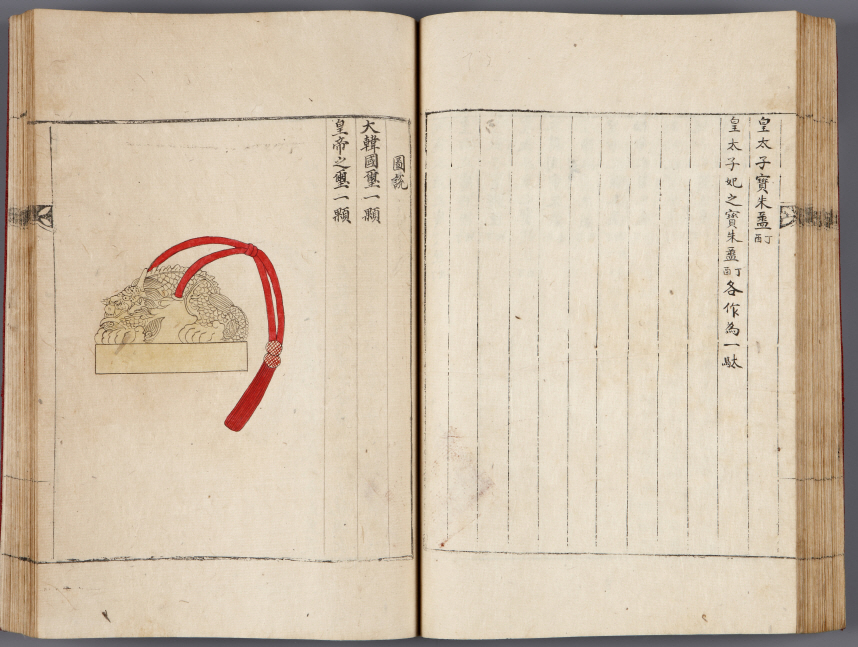 皇太子寶朱盝丁酉
皇太子妃之寶朱盝丁酉各作為一駄
圖說
大韓國璽一顆
皇帝之璽一顆